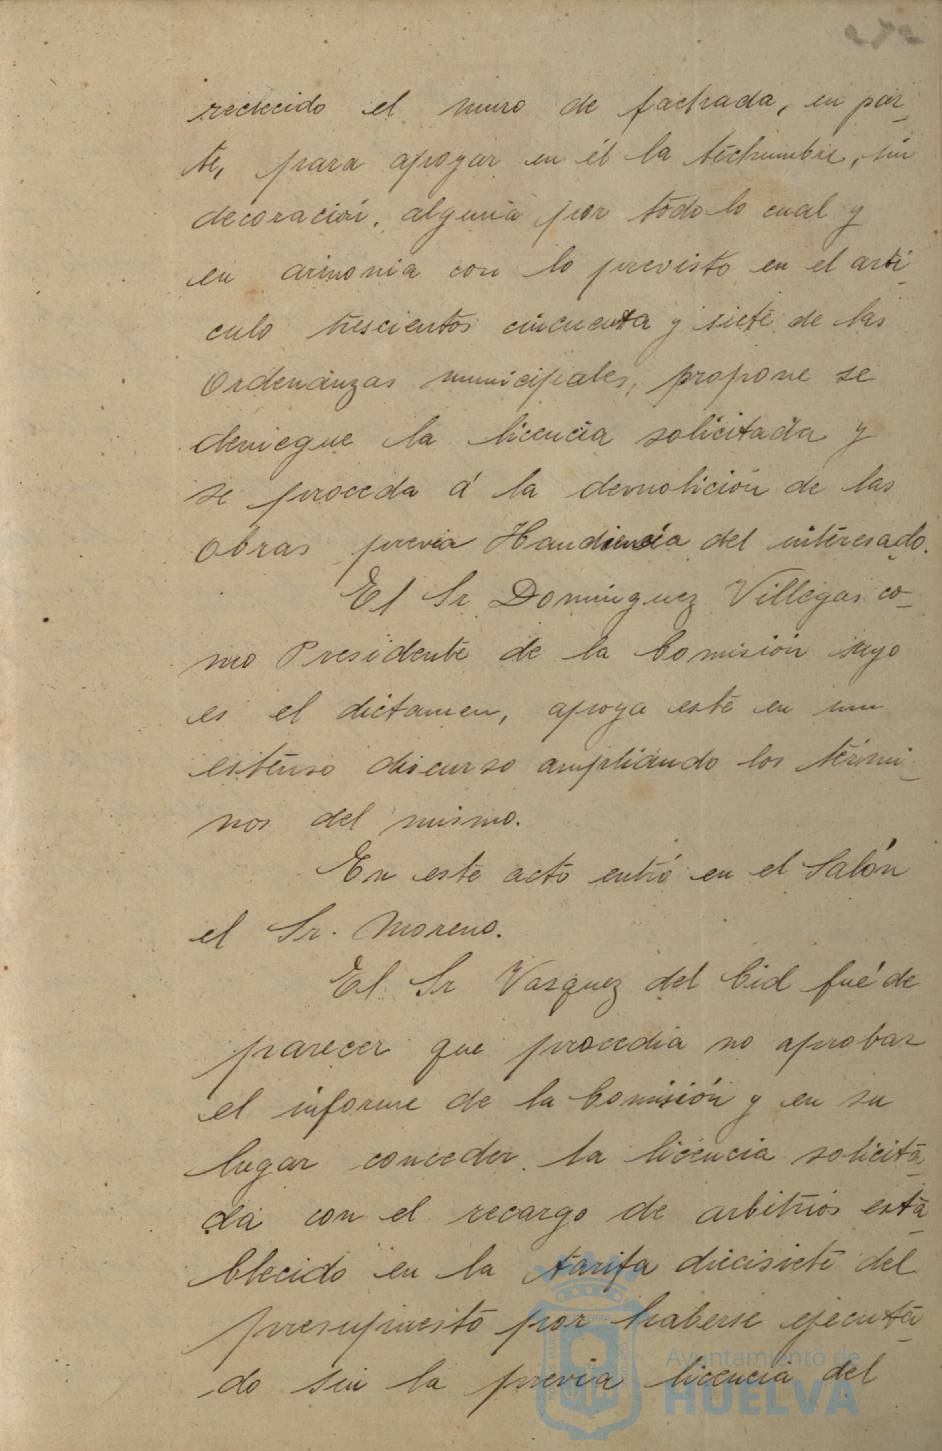 272
recrecido el muro de fachada, en par-
te, para apoyar en él la techumbre, sin
decoración alguna por todo lo cual y
en armonia con lo previsto en el arti-
culo trescientos cincuenta y siete de las
Ordenanzas municipales, propone se
deniegue la licencia solicitada y
se proceda á la demolición de las
obras previa Haudiencia del interesado.
El Sr Dominguez Villegas co-
mo Presidente de la Comisión suyo
es el dictamen, apoya este en un
estenso discurso ampliando los térmi-
nos del mismo.
En este acto entró en el Salón
el Sr. Moreno.
El Sr Vazquez del Cid fué de
parecer que procedia no aprobar
el informe de la Comisión y en su
lugar conceder la licencia solicita-
da con el recargo de arbitrios esta
blecido en la tarifa diecisiete del
presupuesto por haberse ejecuta-
do sin la previa licencia del
Ayuntamiento de
HUELVA